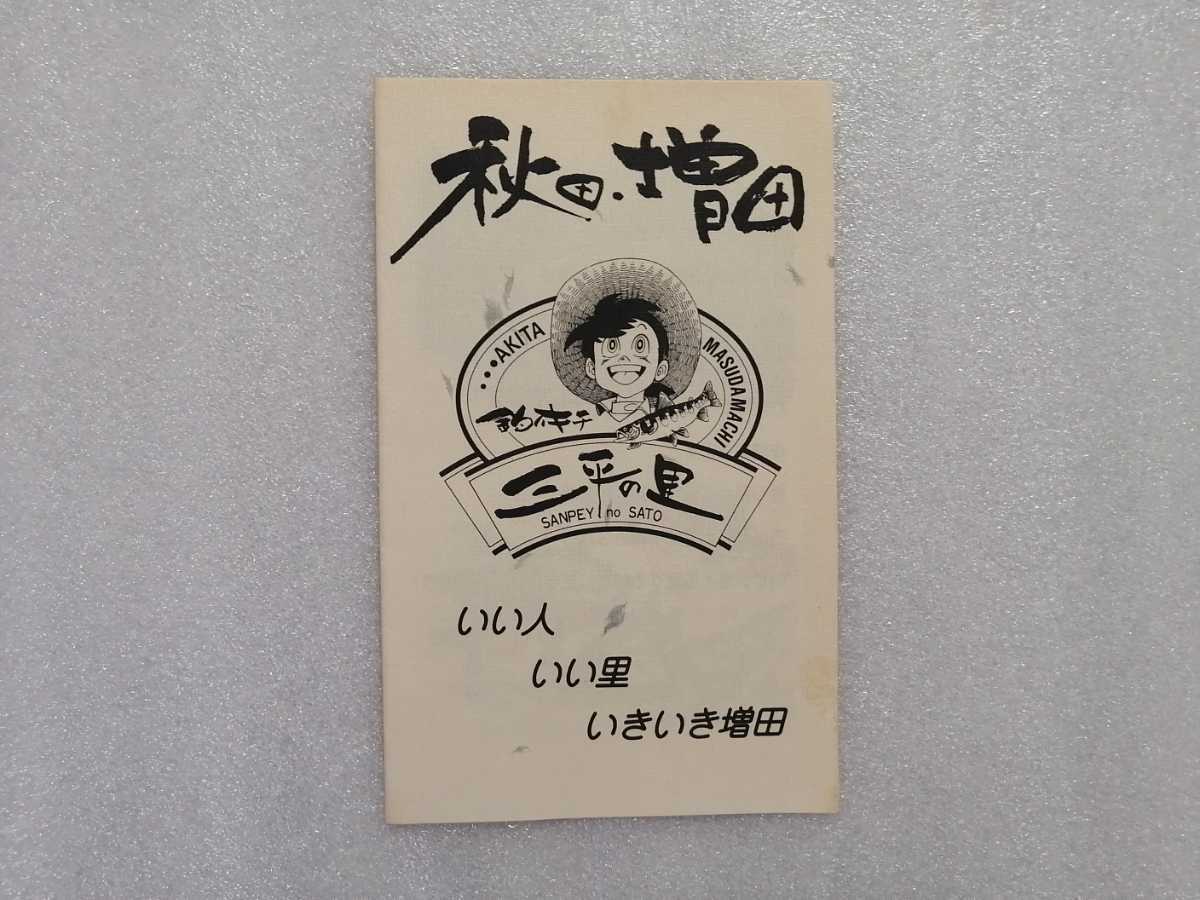 秋田・増田
・・・AKITA
MASUDAMACHI
釣キチ
三平の里
SANPEY no SATO
いい人
いい里
いきいき増田